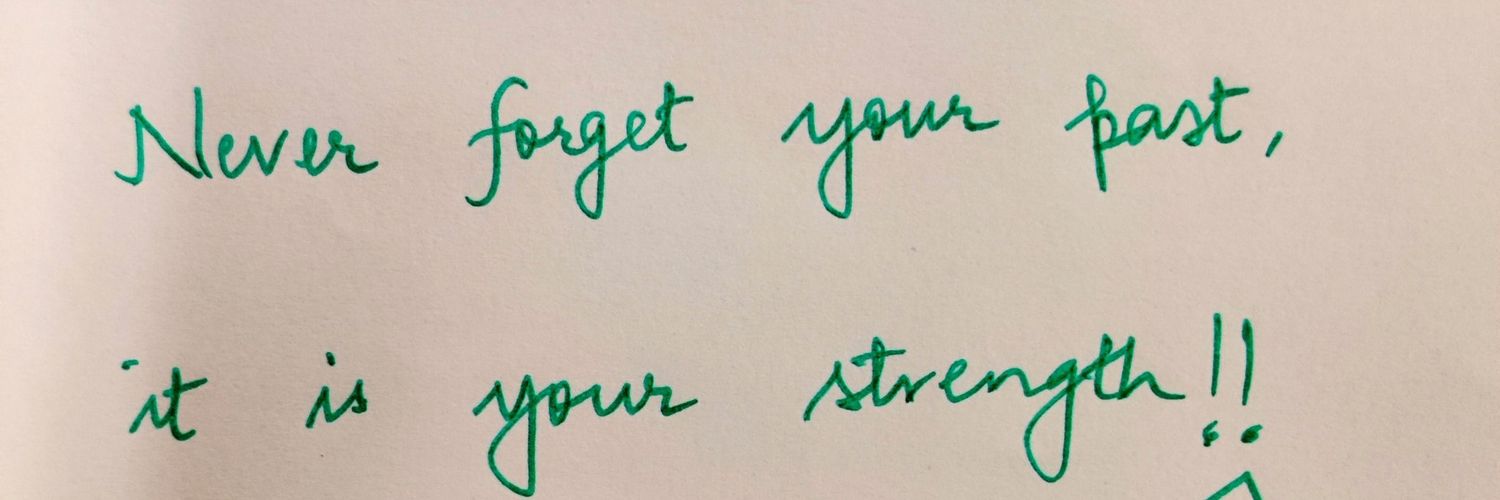 Never forget your past,
it is your strength!!